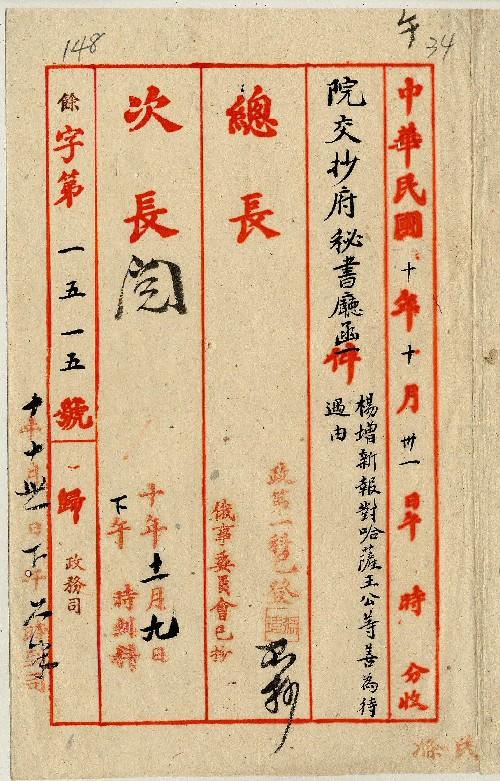 148
午 34
中華民國十年十月卅一日午 時 分收
院交抄府秘書廳函一件
楊增新報對哈薩王公等善為待
遇由
總長
政第一科已登
俄事委員會已抄
次長 閱
十年十一月九日
下午 時到科
餘字第一五一五號 歸 政務司
十年十月卅一日下午